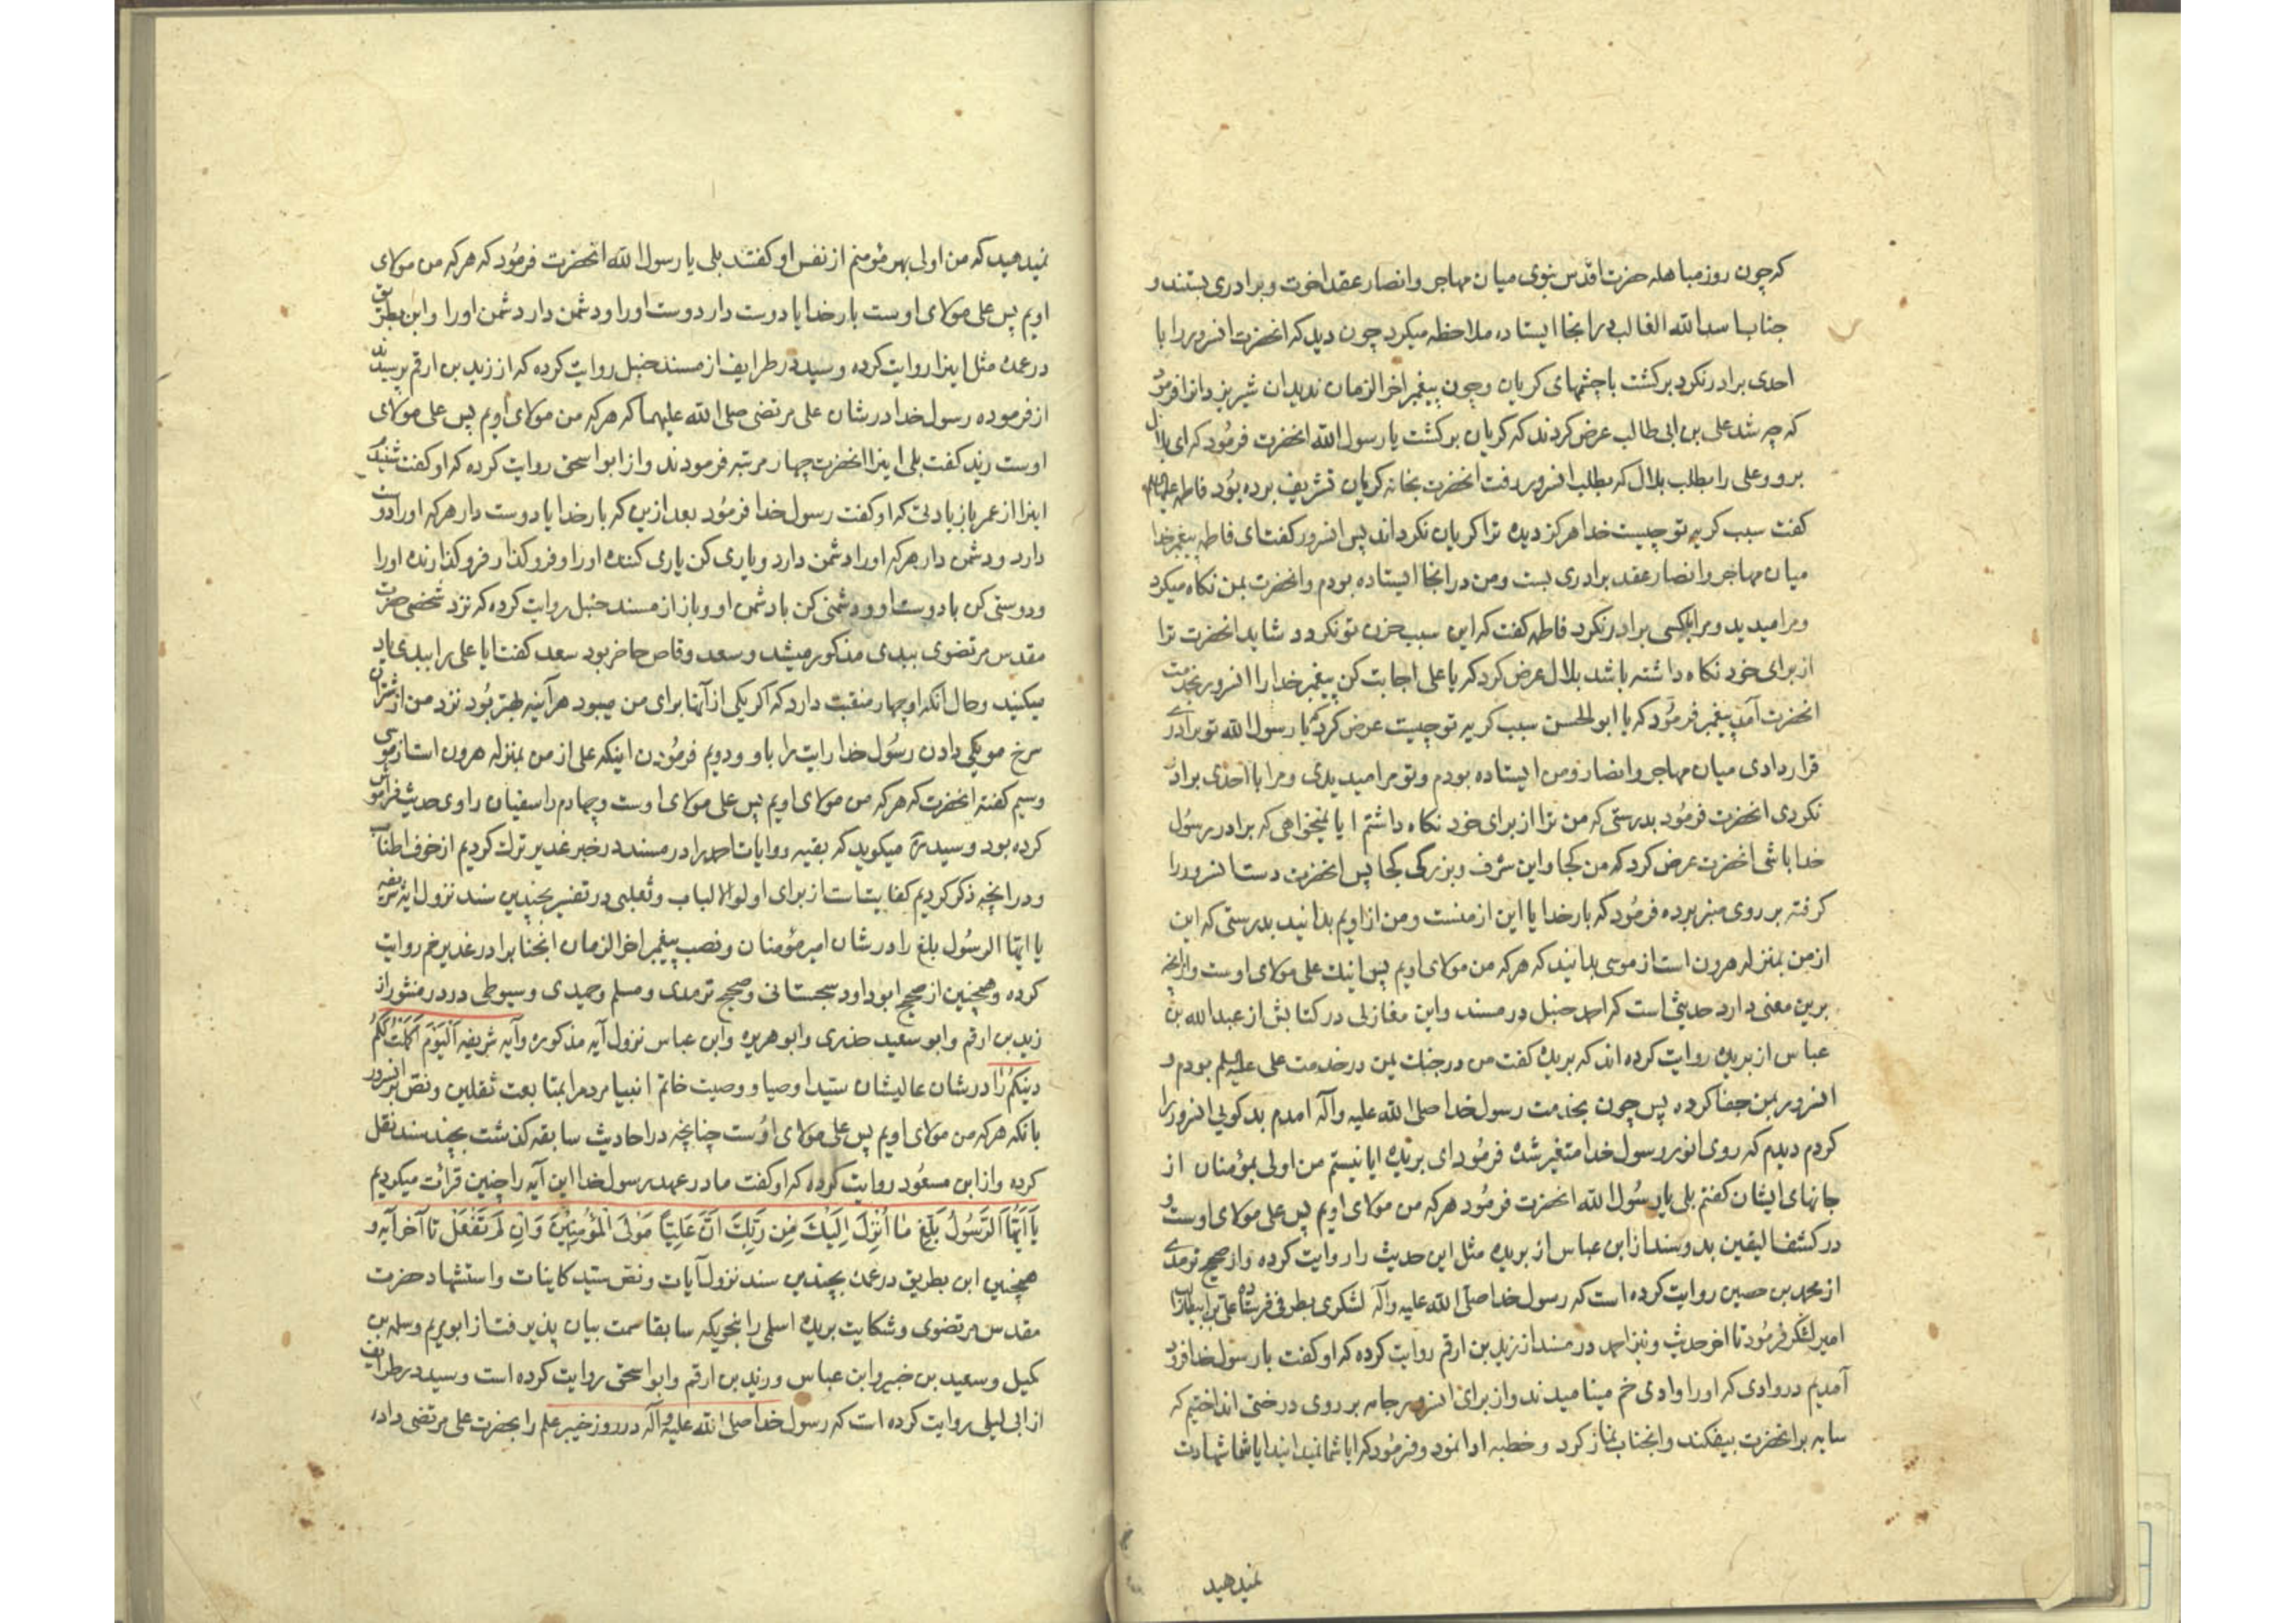 که چون روز مباهله حضرت اقدس نبوی میان مهاجر و انصار عقد اخوت و برادری بستند و
جناب اسد الله الغالب در انجا ایستاده ملاحظه میکرد چون دید که انحضرت انسرور را با
احدی برادر نکرد برکشت با چشمهای کریان و چون پیغمبر اخر الزمان ندید ان شیر یزدانرا فرمود
که چه شد علی بن ابی طالب عرض کردند که کریان برکشت یا رسول الله انحضرت فرمُود که ای بلال
برو و علی را بطلب بلال که بطلب انسرور رفت انحضرت بخانه کریان تشریف برده بوُد فاطمه علیها السلام
کفت سبب کریه تو چیست خدا هرکز دیده ترا کریان نکرداند پس انسرور کفت ای فاطمه پیغمبر خدا
میان مهاجر و انصار عقد برادری بست و من در انجا ایستاده بودم و انحضرت بمن نکاه میکرد
و مرا میدید و مرا با کسی برادر نکرد فاطمه کفت که این سبب حزن تو نکردد شاید انحضرت ترا
از برای خود نکاه داشته باشد بلال عرض کرد که یا علی اجابت کن پیغمبر خدا را انسرور بخدمت
انحضرت آمد پیغمبر فرمُود که یا ابو الحسن سبب کریه تو چیست عرض کرد که یا رسول الله تو برادری
قرار دادی میان مهاجر و انصار و من ایستاده بودم و تو مرا میدیدی و مرا با احدی برادر
نکردی انحضرت فرمُود بدرستی که من ترا از برای خود نکاه داشتم ایا نمیخواهی که برادر رسُول
خدا باشی انحضرت عرض کرد که من کجا و این شرف و بزرکی کجا پس انحضرت دست انسرور را
کرفته بر روی منبر برده فرمُود که بار خدایا این از منست و من از اویم بدانید بدرستی که این
از من بمنزله هرون است از موسی بدانید که هر که من مولای اویم پس اینک علی مولای اوست و از انچه
برین معنی دارد حدیثی است که احمد حنبل در مسند و ابن مغازلی در کتابش از عبد الله بن
عباس از بریده روایت کرده اند که بریده کفت من در جنک یمن در خدمت علی علیه السلم بودم و
انسرور بمن جفا کرده پس چون بخدمت رسول خدا صلی الله علیه و آله امدم بدکویی انسرور را
کردم دیدم که روی انور رسول خدا متغیر شده فرمُود ای بریده ایا نیستم من اولی بمؤمنان از
جانهای ایشان کفتم بلی یا رسُول الله انحضرت فرمُود هر که من مولای اویم پس علی مولای اوست و
در کشف الیقین بدو سند از ابن عباس از بریده مثل این حدیث را روایت کرده و از صحیح ترمدی
از محمد بن حصین روایت کرده است که رسول خدا صلی الله علیه و آله لشکری بطرفی فرستاده علی بن ابیطالب را
امیر لشکر فرمُود تا اخر حدیث و نیز احمد در مسند از زید بن ارقم روایت کرده که او کفت با رسول خدا فرود
آمدیم در وادی که اورا وادی خم مینامیدند و از برای انسرور جامه بر روی درختی انداختیم که
سایه بر انحضرت بیفکند و انجناب نماز کرد و خطبه ادا نمود و فرمُود که ایا شما نمیدانید ایا شما شهادت
نمیدهید
نمیدهید که من اولی بهر مُؤمنم از نفس او کفتند بلی یا رسول الله انحضرت فرمُود که هر که من مولای
اویم پس علی مولای اوست بار خدایا دوست دار دوست اورا و دشمن دار دشمن اورا و ابن بطریق
در عمده مثل اینرا روایت کرده و سید در طرایف از مسند حنبل روایت کرده که از زید بن ارقم پرسیدند
از فرموده رسول خدا در شان علی مرتضی صلی الله علیهما که هر که من مولای اویم پس علی مولای
اوست زید کفت بلی اینرا انحضرت چهار مرتبه فرمودند و از ابو اسحق روایت کرده که او کفت شنیدم
اینرا از عمر یا زیادتی که او کفت رسول خدا فرمُود بعد ازین که بار خدایا دوست دار هر که اورا دوست
دارد و دشمن دار هر که اورا دشمن دارد و یاری کن یاری کننده اورا و فروکذار فروکذارنده اورا
و دوستی کن با دوست او و دشمنی کن با دشمن او و باز از مسند حنبل روایت کرده که نزد شخصی حضرت
مقدس مرتضوی ببدی مذکور میشد و سعد وقاص حاضر بود سعد کفت ایا علی را ببدی یاد
میکنید و حال انکه او چهار منقبت دارد که اکر یکی از آنها برای من میبود هر آینه بهتر بُود نزد من از شتران
سرخ مو یکی دادن رسُول خدا رایت را باو و دویم فرمُودن اینکه علی از من بمنزله هرون است از موسی
و سیم کفته انحضرت که هر که من مولای اویم پس علی مولای اوست و چهارم را سفیان راوی حدیث فراموش
کرده بود و سید ره میکوید که بقیه روایات احمد را در مسند در خبر غدیر ترک کردیم از خوف اطناب
و در انچه ذکر کردیم کفایت است از برای اولو الالباب و ثعلبی در تفسیر بچندین سند نزول ایه شریفه
یا ایها الرسُول بلغ را در شان امیر مؤمنان و نصب پیغمبر اخر الزمان انجناب را در غدیر خم روایت
کرده و همچنین از صحیح ابو داود سجستانی و صحیح ترمدی و مسلم و حمیدی و سیوطی در در منثور از
زید بن ارقم و ابو سعید خدری و ابو هریره و ابن عباس نزول آیه مذکوره و آیه شریفه اَلْیَوْمَ اَکْمَلْتُ لَکُمْ
دینَکُمْ را در شان عالیشان سیّد اوصیا و وصیت خاتم انبیا مردمرا بمتابعت ثقلین و نص بر انسرور
بانکه هر که من مولای اویم پس علی مولای اوُست چنانچه در احادیث سابقه کذشت بچند سند نقل
کرده و از ابن مسعُود روایت کرده که او کفت ما در عهد رسول خدا این آیه را چنین قرائت میکردیم
یٰا اَیُّهَا الرَّسُولُ بَلِّغْ مٰا اُنْزِلَ اِلَیْکَ مِنْ رَبِّکَ اَنَّ عَلِیّاً مَوْلَی الْمُؤْمِنِینَ وَاِنْ لَمْ تَفْعَلْ تا آخر آیه و
همچنین ابن بطریق در عمده بچندین سند نزول آیات و نص سیّد کاینات و استشهاد حضرت
مقدس مرتضوی و شکایت بریده اسلمی را بنحویکه سابقا سمت بیان پذیرفت از ابو مریم و سلمه بن
کهیل و سعید بن خبیر و ابن عباس و زید بن ارقم و ابو اسحق روایت کرده است و سید در طرایف
از ابی لیلی روایت کرده است که رسول خدا صلی الله علیه و آله در روز خیبر علم را بحضرت علی مرتضی داده